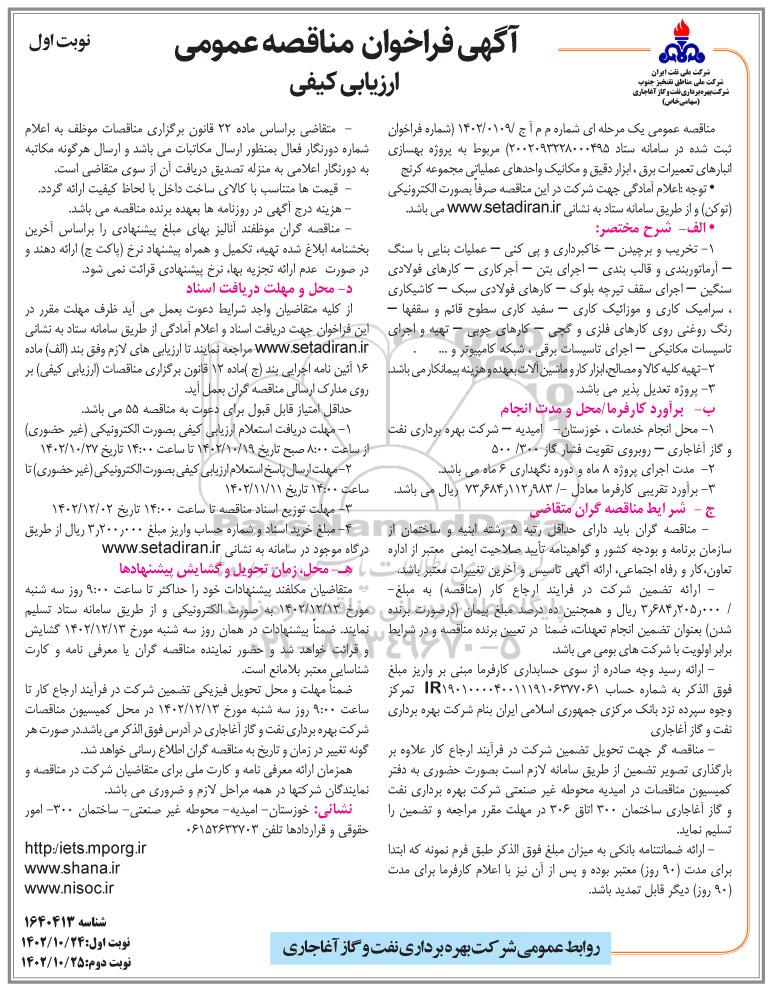 آگهی فراخوان مناقصه عمومی
ارزیابی کیفی
نوبت اول
شرکت ملی نفت ایران
شرکت ملی مناطق نفتخیز جنوب
شرکت بهره برداری نفت و گاز آغاجاری
(سهامی خاص)
مناقصه عمومی یک مرحله ای شماره م م آ ج /۱۴۰۲/۰۱۰۹ (شماره فراخوان
ثبت شده در سامانه ستاد ۲۰۰۲۰۹۳۲۲۸۰۰۰۴۹۵) مربوط به پروژه بهسازی
انبارهای تعمیرات برق ، ابزار دقیق و مکانیک واحدهای عملیاتی مجموعه کرنج
• توجه :اعلام آمادگی جهت شرکت در این مناقصه صرفاً بصورت الکترونیکی
(توکن) و از طریق سامانه ستاد به نشانی www.setadiran.ir می باشد.
• الف- شرح مختصر:
۱- تخریب و برچیدن – خاکبرداری و پی کنی – عملیات بنایی با سنگ
– آرماتوربندی و قالب بندی – اجرای بتن – آجرکاری – کارهای فولادی
سنگین – اجرای سقف تیرچه بلوک – کارهای فولادی سبک – کاشیکاری
، سرامیک کاری و موزائیک کاری – سفید کاری سطوح قائم و سقفها –
رنگ روغنی روی کارهای فلزی و گچی – کارهای چوبی – تهیه و اجرای
تاسیسات مکانیکی – اجرای تاسیسات برقی ، شبکه کامپیوتر و ... .
۲-تهیه کلیه کالا و مصالح،ابزار کار و ماشین آلات بعهده و هزینه پیمانکار می باشد.
۳- پروژه تعدیل پذیر می باشد.
ب- برآورد کارفرما/محل و مدت انجام
۱- محل انجام خدمات ، خوزستان- امیدیه – شرکت بهره برداری نفت
و گاز آغاجاری – روبروی تقویت فشار گاز ۳۰۰/ ۵۰۰
۲- مدت اجرای پروژه ۸ ماه و دوره نگهداری ۶ ماه می باشد.
۳- برآورد تقریبی کارفرما معادل -/ ۷۳٫۶۸۴٫۱۱۲٫۹۸۳ ریال می باشد.
ج - شرایط مناقصه گران متقاضی
- مناقصه گران باید دارای حداقل رتبه ۵ رشته ابنیه و ساختمان از
سازمان برنامه و بودجه کشور و گواهینامه تأیید صلاحیت ایمنی معتبر از اداره
تعاون،کار و رفاه اجتماعی، ارائه آگهی تاسیس و آخرین تغییرات معتبر باشد.
- ارائه تضمین شرکت در فرآیند ارجاع کار (مناقصه) به مبلغ-
/ ۳٫۶۸۴٫۲۰۵٫۰۰۰ ریال و همچنین ده درصد مبلغ پیمان (درصورت برنده
شدن) بعنوان تضمین انجام تعهدات، ضمنا در تعیین برنده مناقصه و در شرایط
برابر اولویت با شرکت های بومی می باشد.
- ارائه رسید وجه صادره از سوی حسابداری کارفرما مبنی بر واریز مبلغ
فوق الذکر به شماره حساب IR۱۹۰۱۰۰۰۰۴۰۰۱۱۱۹۱۰۶۳۷۷۰۶۱ تمرکز
وجوه سپرده نزد بانک مرکزی جمهوری اسلامی ایران بنام شرکت بهره برداری
نفت و گاز آغاجاری
- مناقصه گر جهت تحویل تضمین شرکت در فرآیند ارجاع کار علاوه بر
بارگذاری تصویر تضمین از طریق سامانه لازم است بصورت حضوری به دفتر
کمیسیون مناقصات در امیدیه محوطه غیر صنعتی شرکت بهره برداری نفت
و گاز آغاجاری ساختمان ۳۰۰ اتاق ۳۰۶ در مهلت مقرر مراجعه و تضمین را
تسلیم نماید.
- ارائه ضمانتنامه بانکی به میزان مبلغ فوق الذکر طبق فرم نمونه که ابتدا
برای مدت (۹۰ روز) معتبر بوده و پس از آن نیز با اعلام کارفرما برای مدت
(۹۰ روز) دیگر قابل تمدید باشد.
- متقاضی براساس ماده ۲۲ قانون برگزاری مناقصات موظف به اعلام
شماره دورنگار فعال بمنظور ارسال مکاتبات می باشد و ارسال هرگونه مکاتبه
به دورنگار اعلامی به منزله تصدیق دریافت آن از سوی متقاضی است.
- قیمت ها متناسب با کالای ساخت داخل با لحاظ کیفیت ارائه گردد.
- هزینه درج آگهی در روزنامه ها بعهده برنده مناقصه می باشد.
- مناقصه گران موظفند آنالیز بهای مبلغ پیشنهادی را براساس آخرین
بخشنامه ابلاغ شده تهیه، تکمیل و همراه پیشنهاد نرخ (پاکت ج) ارائه دهند و
در صورت عدم ارائه تجزیه بها، نرخ پیشنهادی قرائت نمی شود.
د- محل و مهلت دریافت اسناد
از کلیه متقاضیان واجد شرایط دعوت بعمل می آید ظرف مهلت مقرر در
این فراخوان جهت دریافت اسناد و اعلام آمادگی از طریق سامانه ستاد به نشانی
www.setadiran.ir مراجعه نمایند تا ارزیابی های لازم وفق بند (الف) ماده
۱۶ آئین نامه اجرایی بند (ج )ماده ۱۲ قانون برگزاری مناقصات (ارزیابی کیفی) بر
روی مدارک ارسالی مناقصه گران بعمل آید.
حداقل امتیاز قابل قبول برای دعوت به مناقصه ۵۵ می باشد.
۱- مهلت دریافت استعلام ارزیابی کیفی بصورت الکترونیکی (غیر حضوری)
از ساعت ۸:۰۰ صبح تاریخ ۱۴۰۲/۱۰/۱۹ تا ساعت ۱۴:۰۰ تاریخ ۱۴۰۲/۱۰/۲۷
۲-مهلت ارسال پاسخ استعلام ارزیابی کیفی بصورت الکترونیکی (غیر حضوری) تا
ساعت ۱۴:۰۰ تاریخ ۱۴۰۲/۱۱/۱۱
۳- مهلت توزیع اسناد مناقصه تا ساعت ۱۴:۰۰ تاریخ ۱۴۰۲/۱۲/۰۲
۴- مبلغ خرید اسناد و شماره حساب واریز مبلغ ۳٫۲۰۰٫۰۰۰ ریال از طریق
درگاه موجود در سامانه به نشانی www.setadiran.ir
هـ- محل، زمان تحویل و گشایش پیشنهادها
متقاضیان مکلفند پیشنهادات خود را حداکثر تا ساعت ۹:۰۰ روز سه شنبه
مورخ ۱۴۰۲/۱۲/۱۳ به صورت الکترونیکی و از طریق سامانه ستاد تسلیم
نمایند. ضمناً پیشنهادات در همان روز سه شنبه مورخ ۱۴۰۲/۱۲/۱۳ گشایش
و قرائت خواهد شد و حضور نماینده مناقصه گران یا معرفی نامه و کارت
شناسایی معتبر بلامانع است.
ضمناً مهلت و محل تحویل فیزیکی تضمین شرکت در فرآیند ارجاع کار تا
ساعت ۹:۰۰ روز سه شنبه مورخ ۱۴۰۲/۱۲/۱۳ در محل کمیسیون مناقصات
شرکت بهره برداری نفت و گاز آغاجاری در آدرس فوق الذکر می باشد.در صورت هر
گونه تغییر در زمان و تاریخ به مناقصه گران اطلاع رسانی خواهد شد.
همزمان ارائه معرفی نامه و کارت ملی برای متقاضیان شرکت در مناقصه و
نمایندگان شرکتها در همه مراحل لازم و ضروری می باشد.
نشانی: خوزستان- امیدیه- محوطه غیر صنعتی- ساختمان ۳۰۰- امور
حقوقی و قراردادها تلفن ۰۶۱۵۲۶۳۲۷۰۳
http:/iets.mporg.ir
www.shana.ir
www.nisoc.ir
شناسه ۱۶۴۰۴۱۳
نوبت اول:۱۴۰۲/۱۰/۲۴
نوبت دوم:۱۴۰۲/۱۰/۲۵
روابط عمومی شرکت بهره برداری نفت و گاز آغاجاری